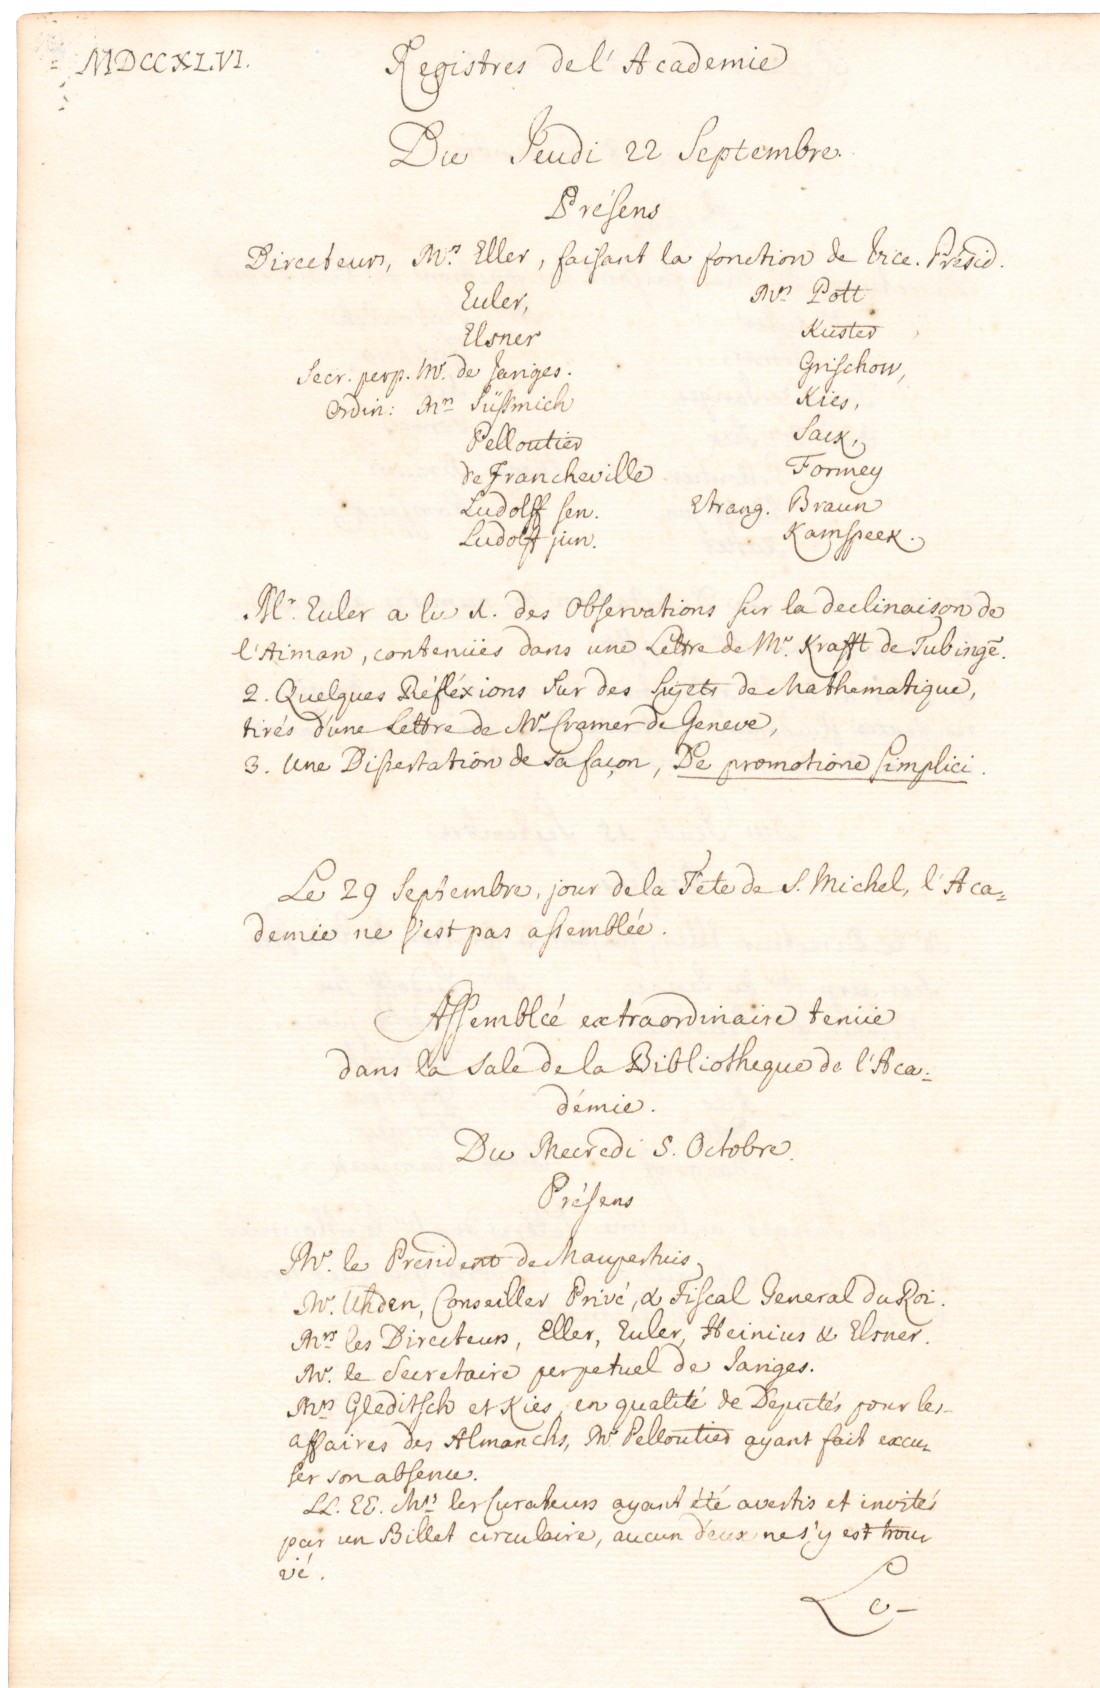 MDCCXLVI.
Registres de l'Academie
Du Jeudi 22 Septembre.
Présens
Directeurs, Mrs. Eller, faisant la fonction de Vice. Présid.
Euler,
Elsner
Secr. perp. Mr. de Jariges.
Ordin: Mrs Süssmich
Pelloutier
de Francheville
Ludolff sen.
Ludolff jun.
Mrs Pott
Kuster
Grischow,
Kies,
Sack,
Formey
Etrang. Braun
Kamspeek.
Mr. Euler a lu 1. des Observations sur la declinaison de
l'Aiman, contenües dans une Lettre de Mr. Krafft de Tubinge.
2. Quelques Réfléxions sur des sujets de Mathematique,
tirés d'une Lettre de Mr Cramer de Geneve,
3. Une Dissertation de sa façon, De promotione simplici.
Le 29 Septembre, jour de la Fete de S. Michel, l'Aca=
demie ne s'est pas assemblée.
Assembleé extraordinaire tenüe
dans la Sale de la Bibliotheque de l'Aca=
démie.
Du Mecredi 5. Octobre.
Présens
Mr. le President de Maupertuis,
Mr. Uhden, Conseiller Privé, & Fiscal General du Roi.
Mrs les Directeurs, Eller, Euler, Heinius & Elsner.
Mr. le Secretaire perpetuel de Jariges.
Mrs Gleditsch et Kies, en qualité de Deputés pour les
affaires des Almanchs, Mr Pelloutier ayant fait excu=
ser son absence.
LL. EE. Mrs les Curateurs ayant été avertis et invités
par un Billet circulaire, aucun d'eux ne s'y est trou
vé.
Le-